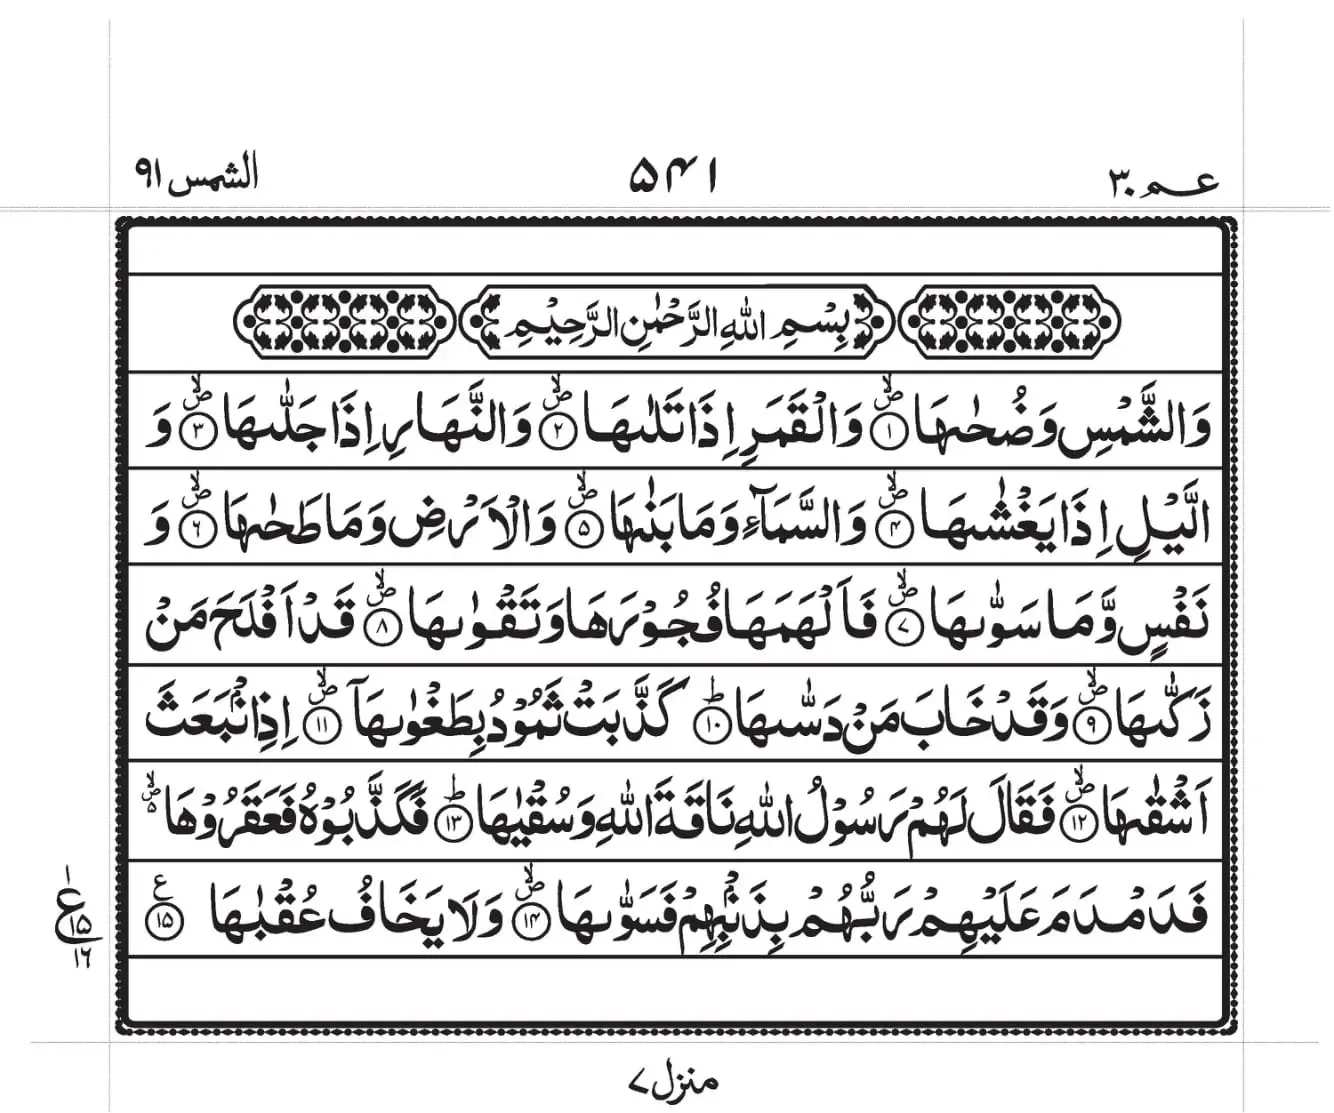 عم ۳۰
۵۴۱
الشمس ۹۱
بِسْمِ اللهِ الرَّحْمٰنِ الرَّحِيْمِ
وَالشَّمْسِ وَضُحٰىهَا ۝۱۪ۙ وَالْقَمَرِ اِذَا تَلٰىهَا ۝۲۪ۙ وَالنَّهَارِ اِذَا جَلّٰىهَا ۝۳۪ۙ وَ
الَّيْلِ اِذَا يَغْشٰىهَا ۝۴۪ۙ وَالسَّمَآءِ وَمَا بَنٰىهَا ۝۵۪ۙ وَالْاَرْضِ وَمَا طَحٰىهَا ۝۶۪ۙ وَ
نَفْسٍ وَّمَا سَوّٰىهَا ۝۷۪ۙ فَاَلْهَمَهَا فُجُوْرَهَا وَتَقْوٰىهَا ۝۸۪ۙ قَدْ اَفْلَحَ مَنْ
زَكّٰىهَا ۝۹۪ۙ وَقَدْ خَابَ مَنْ دَسّٰىهَا ۝۱۰ؕ كَذَّبَتْ ثَمُوْدُ بِطَغْوٰىهَاۤ ۝۱۱۪ۙ اِذِ انْۢبَعَثَ
اَشْقٰىهَا ۝۱۲۪ۙ فَقَالَ لَهُمْ رَسُوْلُ اللهِ نَاقَةَ اللهِ وَسُقْيٰهَا ۝۱۳ؕ فَكَذَّبُوْهُ فَعَقَرُوْهَا ۵۪ۙ
فَدَمْدَمَ عَلَيْهِمْ رَبُّهُمْ بِذَنْۢبِهِمْ فَسَوّٰىهَا ۝۱۴۪ۙ وَلَا يَخَافُ عُقْبٰهَا ۝۱۵ ع
۱
ع
۱۵
۱۶
منزل ۷